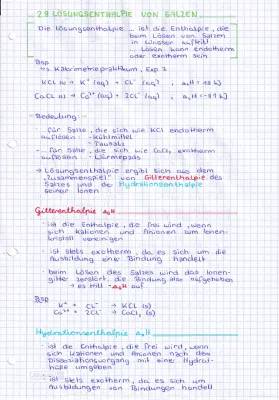 2.9 LÖSUNGSENTHALPIE VON SALZEN
Die Lösungsenthalpie ... ist die Enthalpie, die
beim Lösen von Salzen
in Wasser auftritt
... Lösen kann endotherm
oder exotherm sein
Bsp
↳ Kalorimetriepraktikum, Exp. 3
KCl (s) → K⁺ (aq) + Cl⁻ (aq) , ΔₗH =
CaCl₂ (s) → Ca²⁺ (aq) + 2Cl⁻ (aq) , ΔₗH =
Bedeutung:
- für Salze, die sich wie KCl endotherm
auflösen: - Kühlmittel
- Tausalz
- für Salze, die sich wie CaCl₂ exotherm
auflösen: - Wärmepads
→ Lösungsenthalpie ergibt sich aus dem
"Zusammenspiel" von Gitterenthalpie des
Salzes und der Hydrationsenthalpie
seiner Ionen
Gitterenthalpie
- ist die Enthalpie, die frei wird, wenn
sich Kationen und Anionen zum Ionen-
kristall vereinigen
- ist stets exotherm, da es sich um die
Ausbildung einer Bindung handelt
- beim Lösen des Salzes wird das Ionen-
gitter zerstört, die Bindung also aufgehoben
→ es tritt auf
Bsp
K⁺ + Cl⁻ → KCl (s)
Ca²⁺ + 2Cl⁻ → CaCl₂ (s)
Hydrationsenthalpie
- ist die Enthalpie, die frei wird, wenn
sich Kationen und Anionen nach dem
Dissoziationsvorgang mit einer Hydrat-
hülle umgeben
- ist stets exotherm, da es sich um
Ausbildung von Bindungen handelt